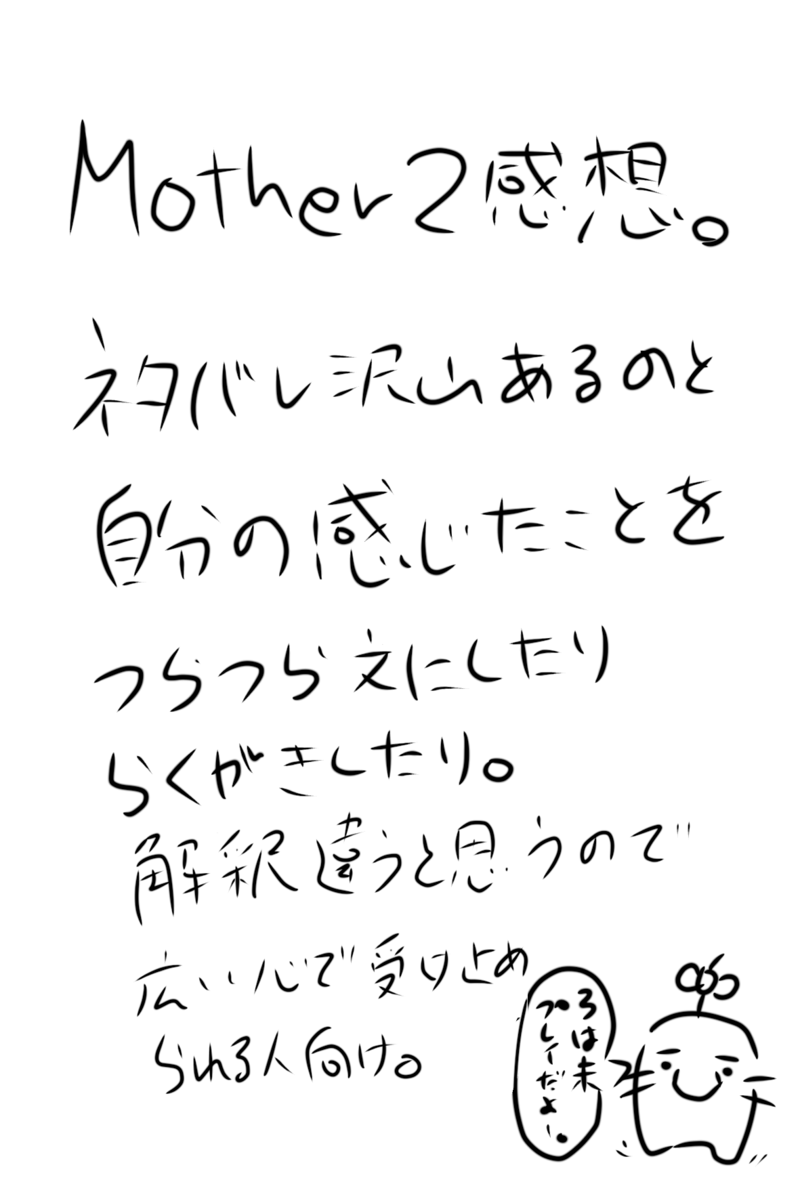 Mother2感想。
ネタバレ沢山あるのと
自分の感じたことを
つらつら文にしたり
らくがきしたり。
解釈違うと思うので
広い心で受け止め
られる人向け。
3は未
プレイだよー。